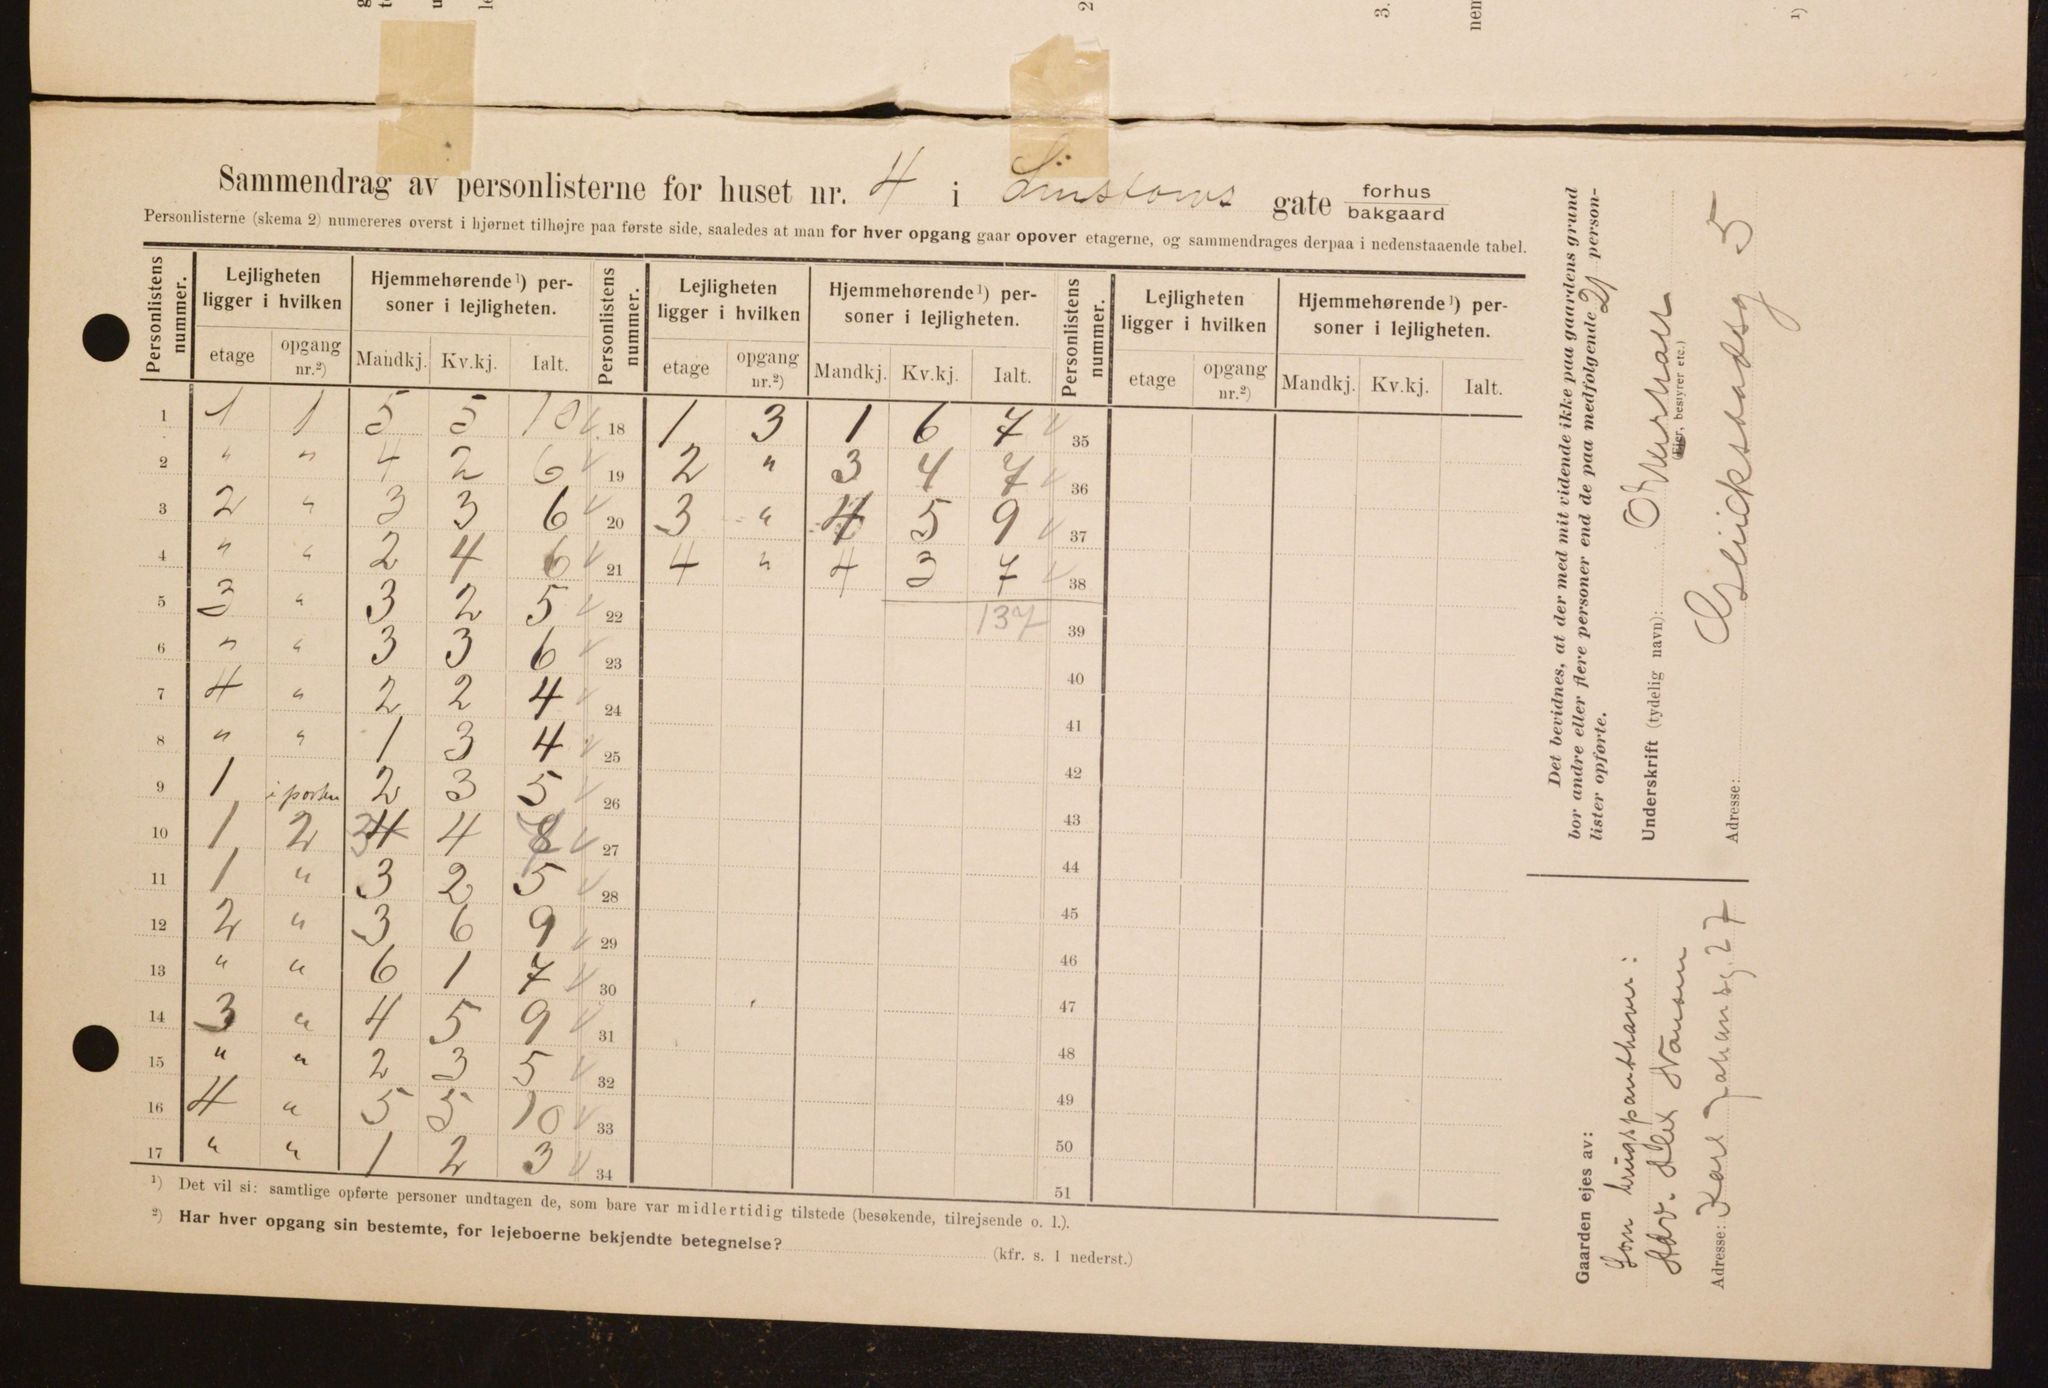 Sammendrag av personlisterne for huset nr. 4 i Linstows gate forhus bakgaard
Personlisterne (skema 2) numereres øverst i hjørnet tilhøjre paa første side, saaledes at man for hver opgang gaar opover etagerne, og sammendrages derpaa i nedenstaaende tabel.
Personlistens nummer. Lejligheten ligger i hvilken Hjemmehørende¹) personer i lejligheten. Personlistens nummer. Lejligheten ligger i hvilken Hjemmehørende¹) personer i lejligheten. Personlistens nummer. Lejligheten ligger i hvilken Hjemmehørende¹) personer i lejligheten.
etage opgang nr.²) Mandkj. Kv.kj. Ialt. etage opgang nr.²) Mandkj. Kv.kj. Ialt. etage opgang nr.²) Mandkj. Kv.kj. Ialt.
1 1 1 5 5 10 18 1 3 1 6 7 35
2 " " 4 2 6 19 2 " 3 4 7 36
3 2 " 3 3 6 20 3 " 4 5 9 37
4 " " 2 4 6 21 4 " 4 3 7 38
5 3 " 3 2 5 22 137 39
6 " " 3 3 6 23 40
7 4 " 2 2 4 24 41
8 " " 1 3 4 25 42
9 1 i porten 2 3 5 26 43
10 1 2 3 4 4 7 8 27 44
11 1 " 3 2 5 28 45
12 2 " 3 6 9 29 46
13 " " 6 1 7 30 47
14 3 " 4 5 9 31 48
15 " " 2 3 5 32 49
16 4 " 5 5 10 33 50
17 " " 1 2 3 34 51
¹) Det vil si: samtlige opførte personer undtagen de, som bare var midlertidig tilstede (besøkende, tilrejsende o. l.).
²) Har hver opgang sin bestemte, for lejeboerne bekjendte betegnelse? (kfr. s. 1 nederst.)
Det bevidnes, at der med mit vidende ikke paa gaardens grund
bor andre eller flere personer end de paa medfølgende 21 person-
lister opførte.
Underskrift (tydelig navn):
(Ejer, bestyrer etc.)
Adresse: Glücksstadsg 5
Gaarden ejes av:
Som brugspanthaver:
Adv. Alex Nansen
Adresse: Karl Johansg. 27